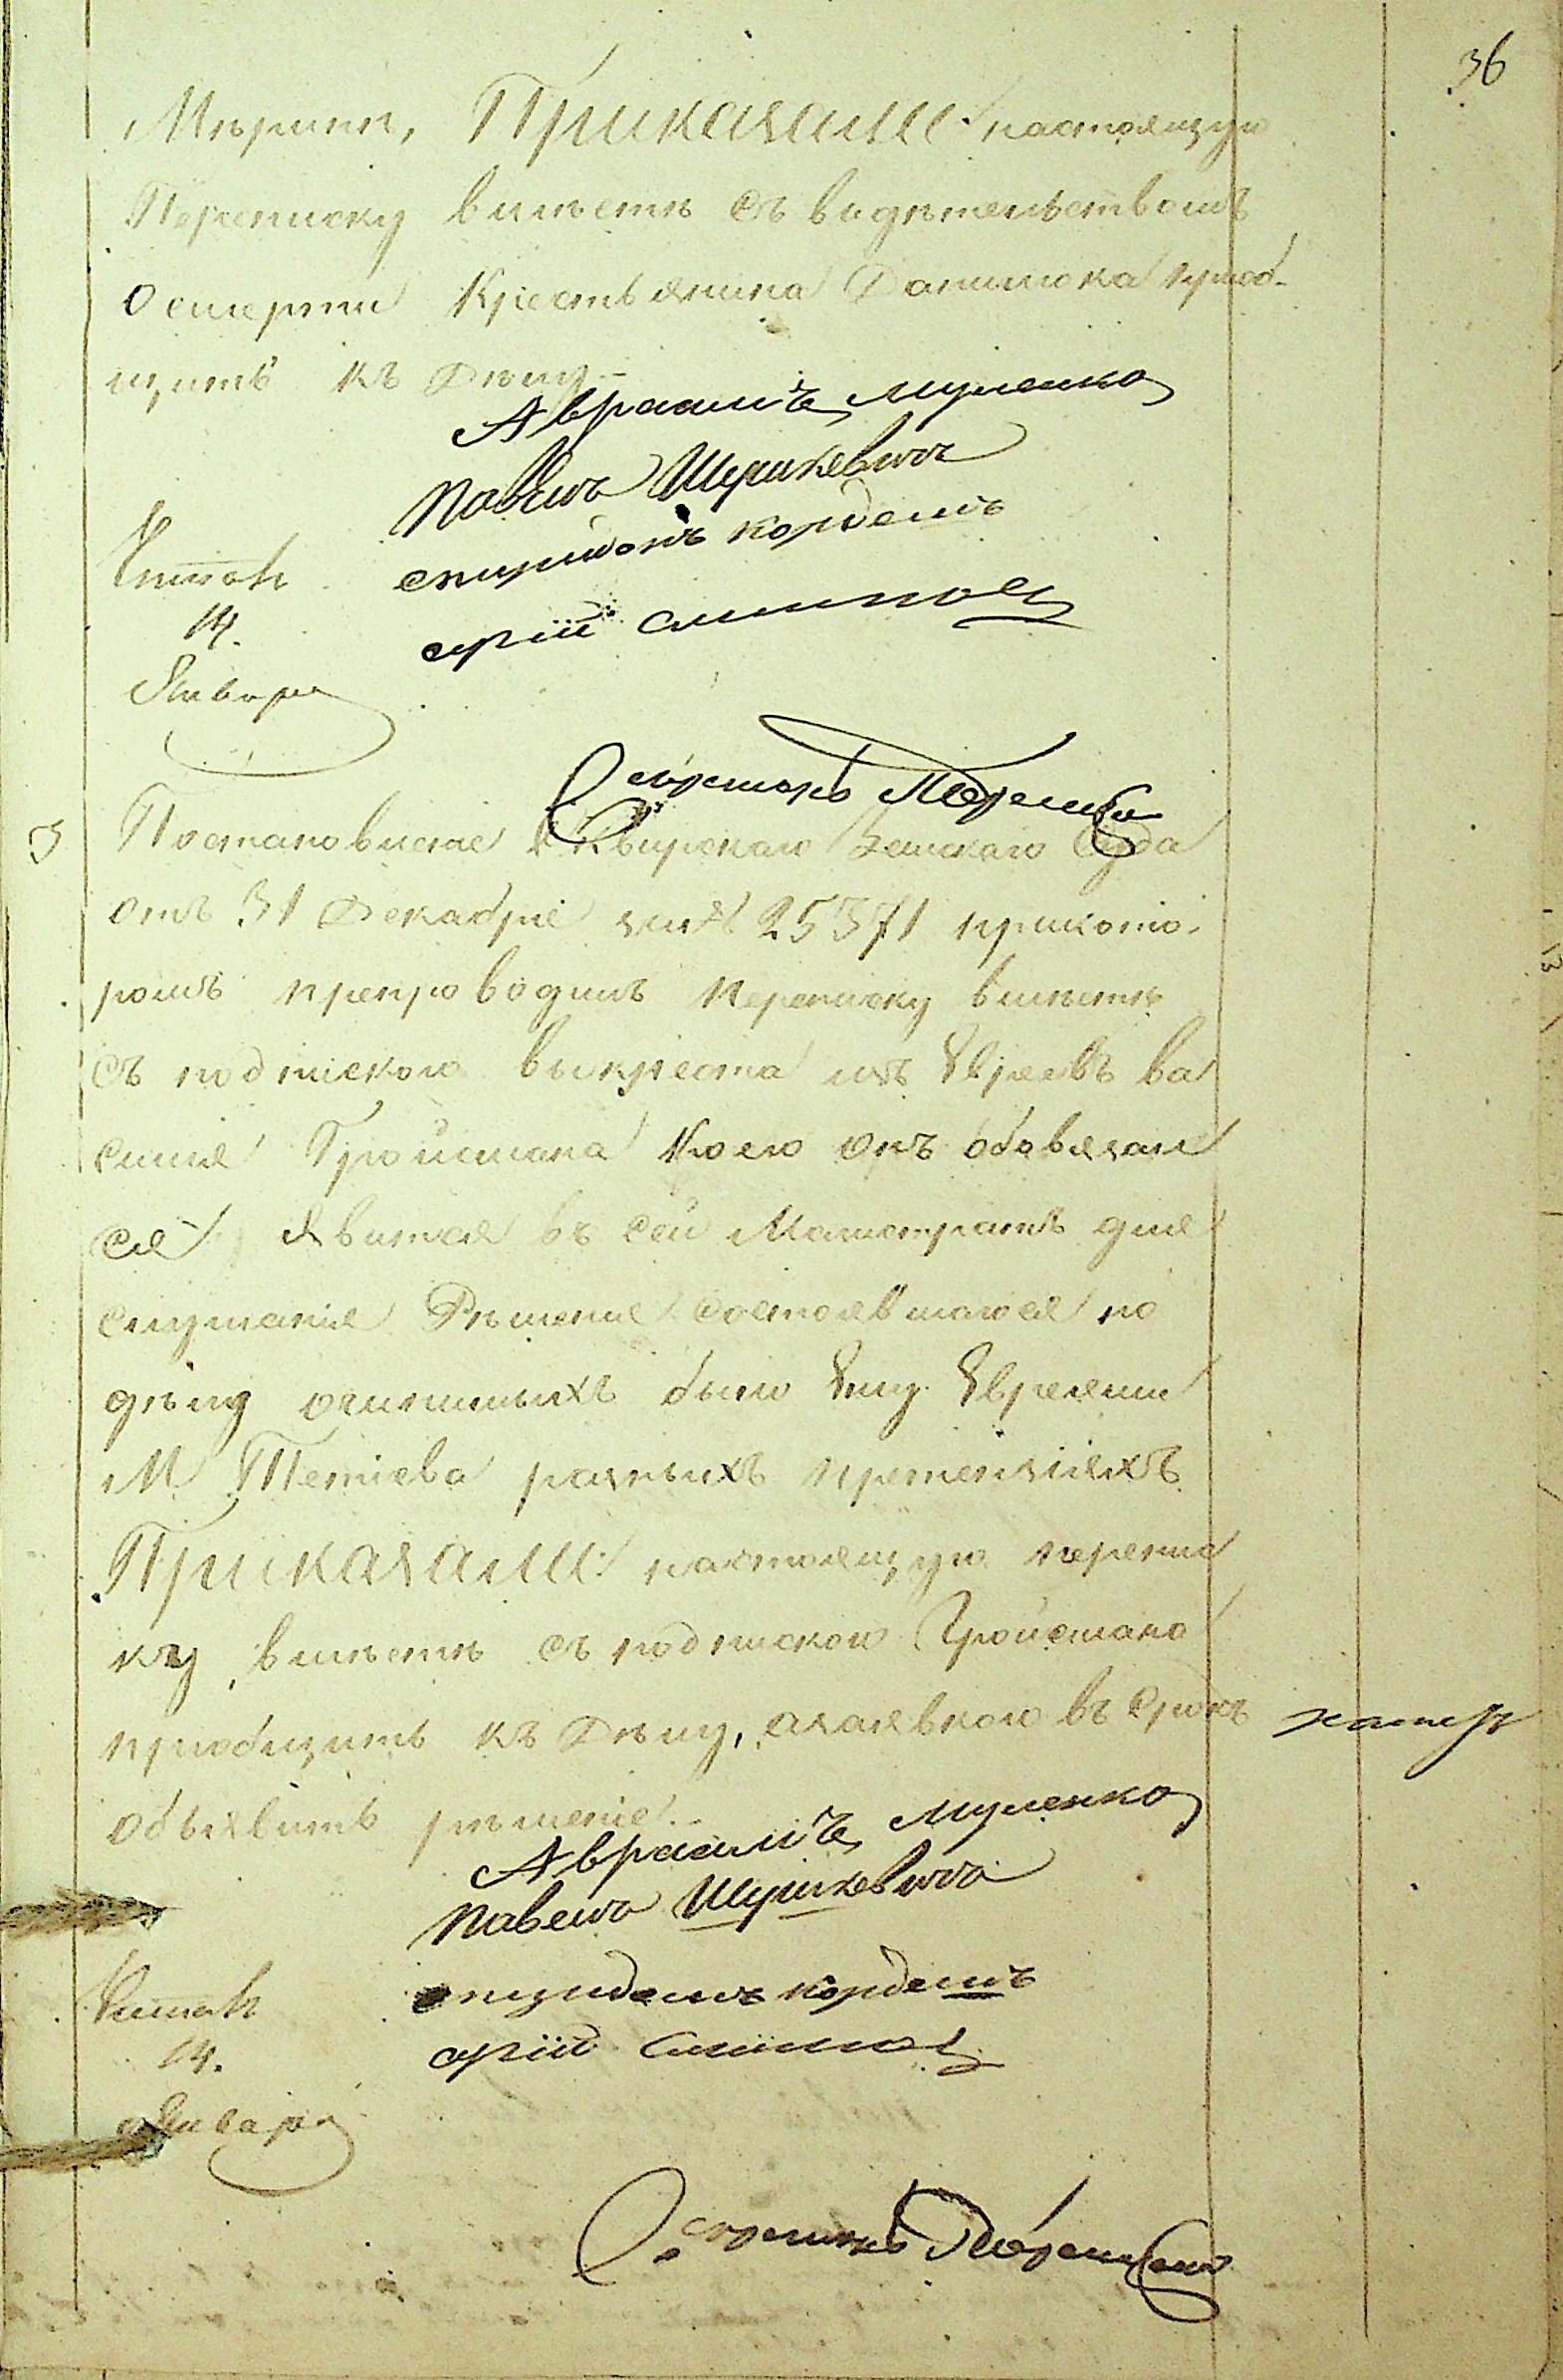 36
Мѣрипп, Приказали: настоящую
Переписку вмѣстѣ съ видѣтельствомъ
о смерти Крестьянина Данилюка приоб-
щить къ Дѣлу.-
Авраамъ Муленко
Павелъ Шушкевичъ
спиридонъ корделъ
орій
14.
Января
Секретарь
3 Постановленіе Сквирскаго Земскаго Суда
отъ 31 Декабря за № 25371 прикото-
ромъ препроводилъ переписку вмѣстѣ
съ подпискою выкреста изъ Евреевъ Ва
силія Гройсмана коею онъ обязалс
ся явится въ сей Магистратъ для
слушанія Рѣшенія состоявшагося по
дѣлу о чинимыхъ было ему Евреями
М Тетіева разныхъ претензіяхъ
Приказали: настоящую перепис
ку вмѣстѣ съ подпискою Гройсмана
приобщить къ Дѣлу, а за явкою въ срокъ
объявить рѣшеніе.-
Авраамъ Муленко
Павелъ Шушкевичъ
спиридонъ корделъ
орій
14.
Января
Секретарь